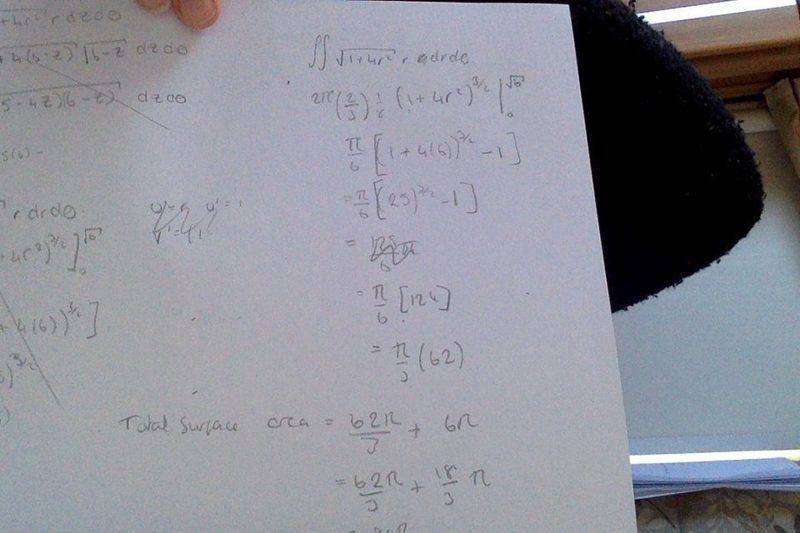 +4r² r dz dθ
+ 4(6-z) √6-z dz dθ
5 - 4z)(6-z) dz dθ
r dr dθ
+ 4r²)^3/2 ]₀^√6
+ 4(6))^3/2 ]
)^3/2
∬ √1+4r² r dr dθ
2π (2/3) 1/8 (1+4r²)^3/2 |₀^√6
π/6 [1+4(6))^3/2 - 1]
= π/6 [(25)^3/2 - 1]
=
= π/6 [124]
= π/3 (62)
Total surface area = 62π/3 + 6π
= 62π/3 + 18/3 π